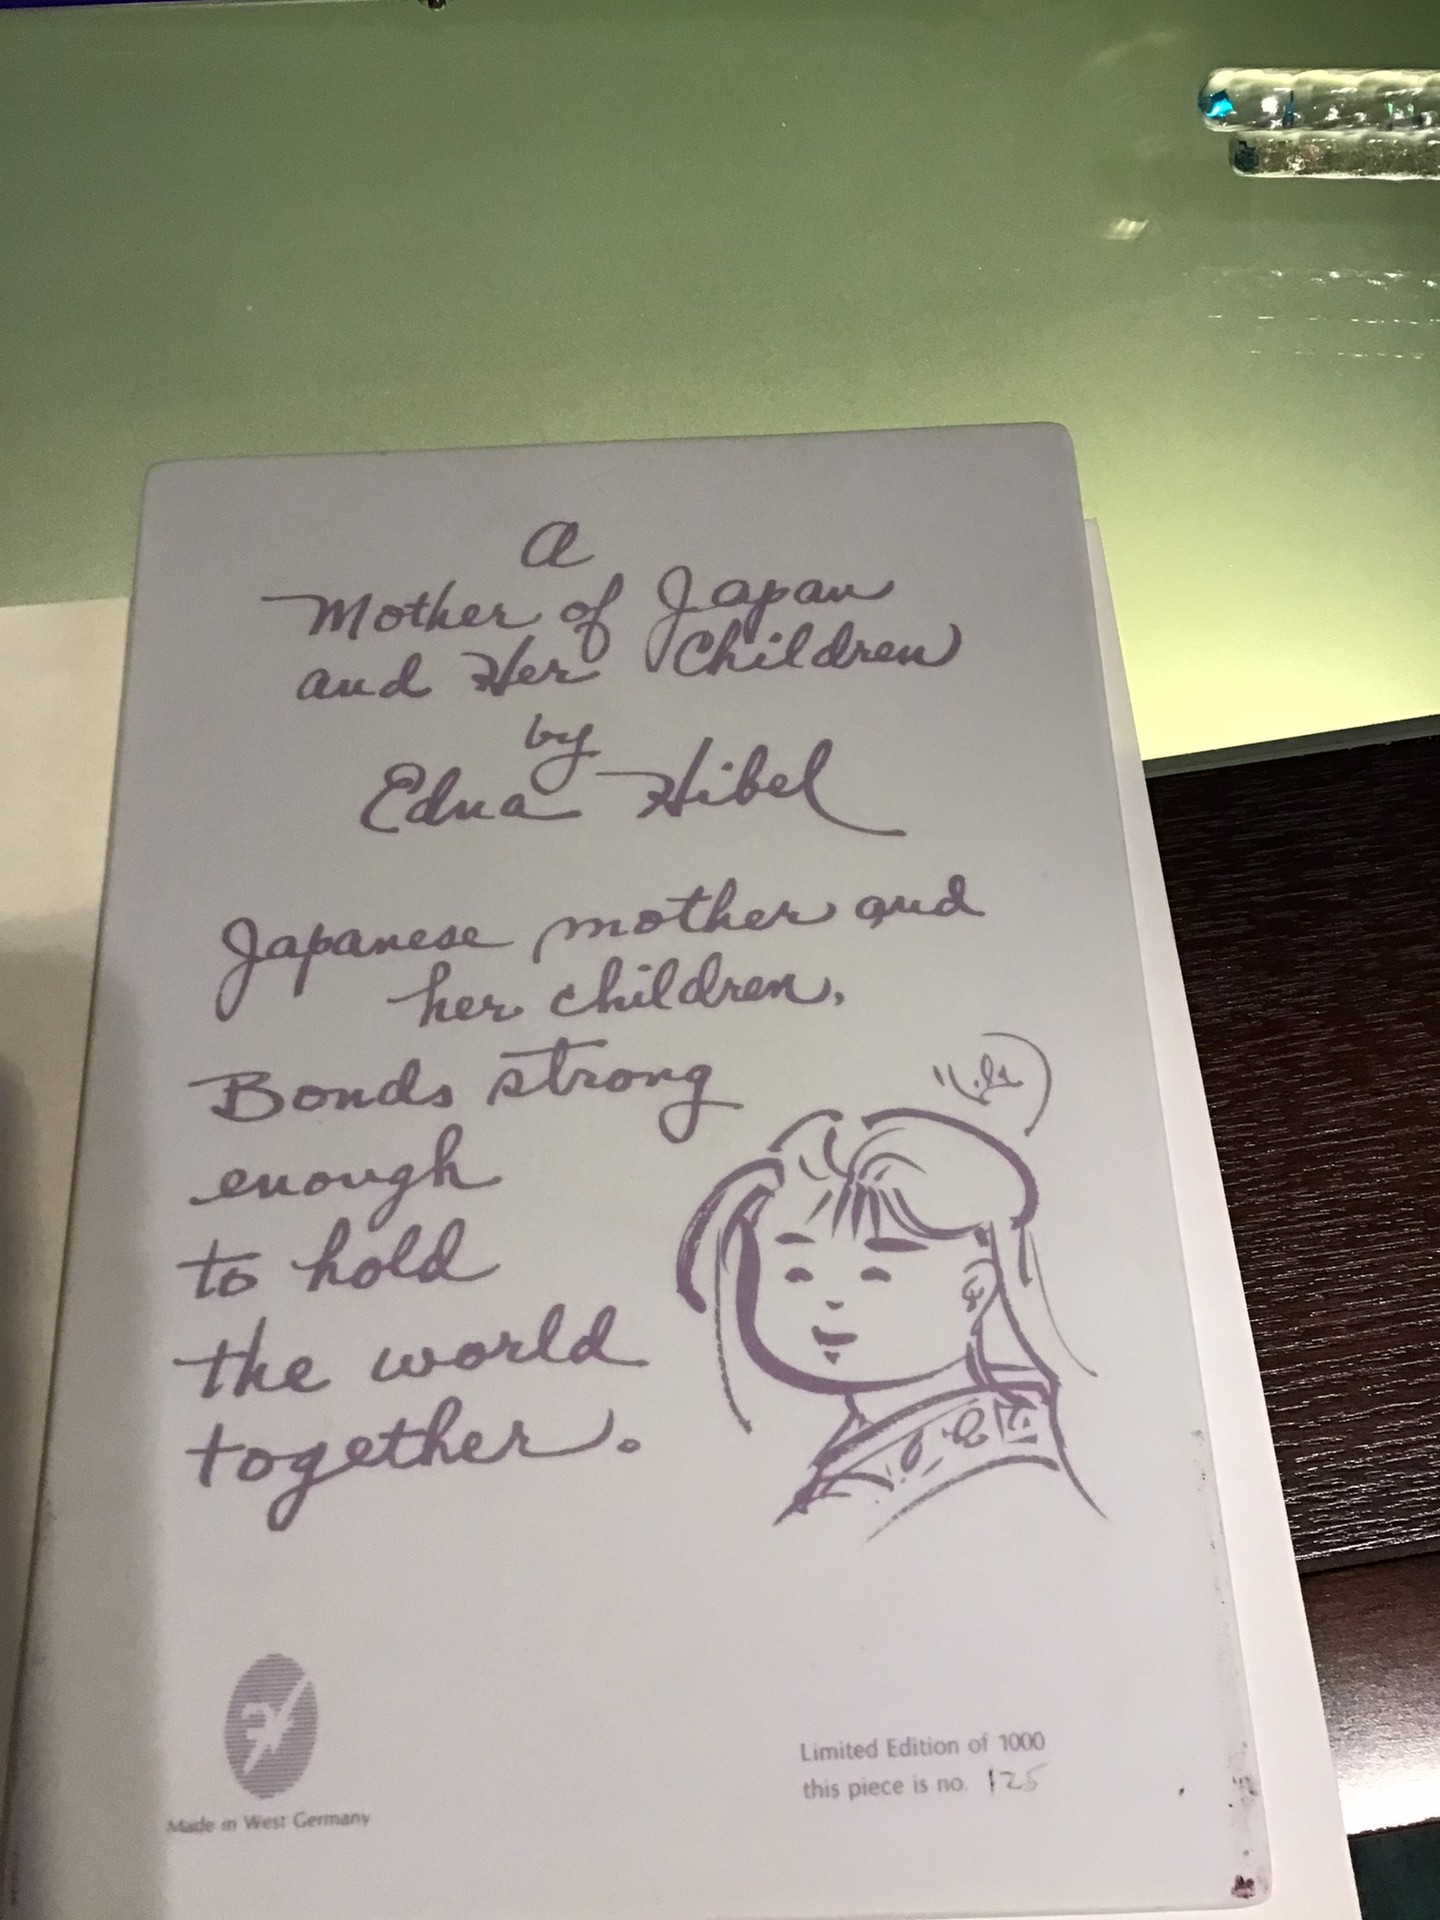 A
Mother of Japan
and Her Children
by
Edna Hibel
Japanese mother and
her children,
Bonds strong
enough
to hold
the world
together.
Made in West Germany
Limited Edition of 1000
this piece is no. 125